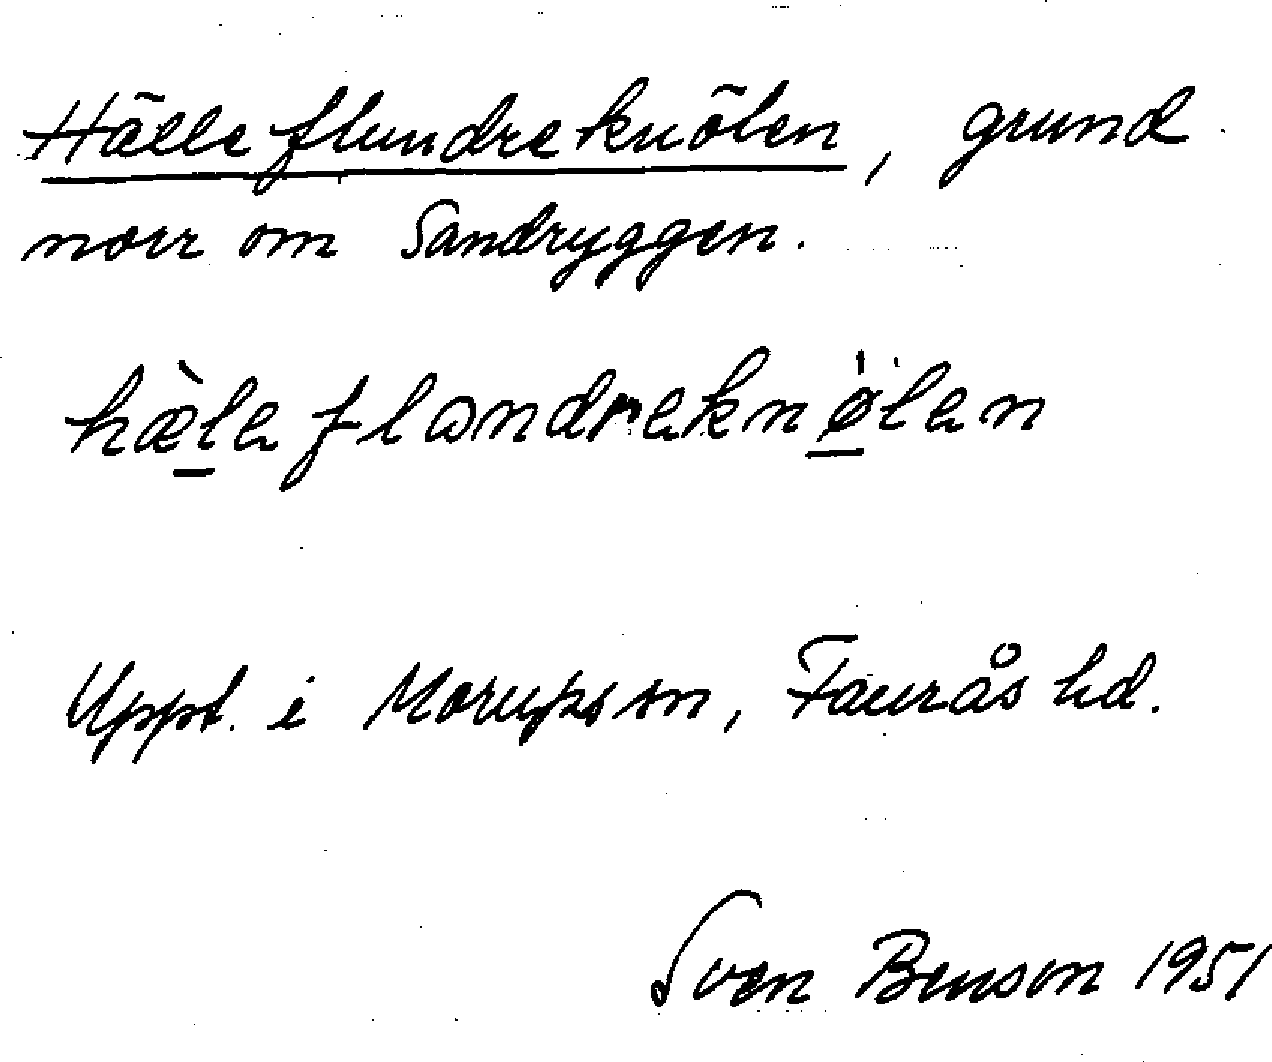 Hälleflundreknölen, grund
norr om Sandryggen.
hæ̀laflɷndraknø̍lan
Uppt. i Morups sn, Faurås hd.
Sven Benson 1951